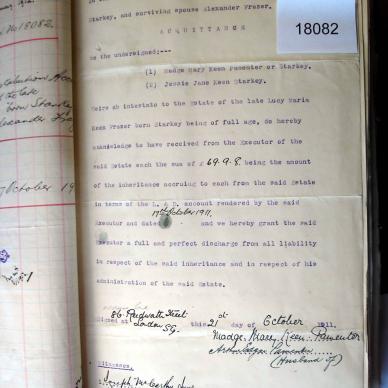 18082
Starkey, and surviving spouse Alexander Frazer.
ACQUITTANCE
We the undersigned;---
(1) Madge Mary Keen Pamenter or Starkey.
(2) Jessie Jane Keen Starkey.
Heirs ab intestato to the Estate of the late Lucy Maria
Keen Frazer born Starkey being of full age, do hereby
acknowledge to have received from the Executor of the
said Estate each the sum of £ 69.9.8. being the amount
of the inheritance accruing to each from the said Estate
in terms of the L. & D. account rendered by the said
17th October 1911.
Executor and dated and we hereby grant the said
Executor a full and perfect discharge from all liability
in respect of the said inheritance and in respect of his
administration of the said Estate.
Street
London
Signed at this 21st day of October 1911.
Madge Mary Keen Pamenter
Pamenter
(Husband of)
Witnesses.
Joseph McCarthy
No 18082.
October 19